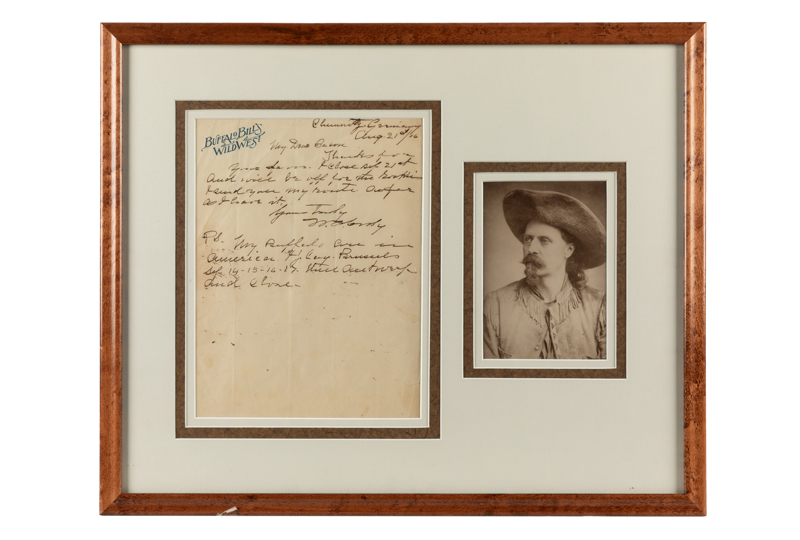 BUFFALO BILL'S
WILD WEST
Chemnitz Germany
Aug 21st/06
My Dear Baron
Thanks for
your I close Oct 21st
and will be off for the
I send you my route as far
as I have it,
Yours Truly
W. F. Cody
P.S. My Buffalo are in
America. I play Brussels
Sep. 14-15-16-17. then Antwerp
and Close-